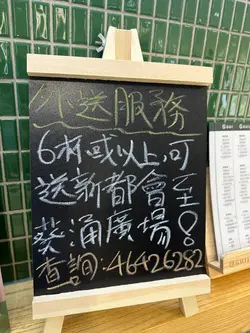 外送服務
6杯或以上,可
送新都會至
葵涌廣場!
查詢:46426282